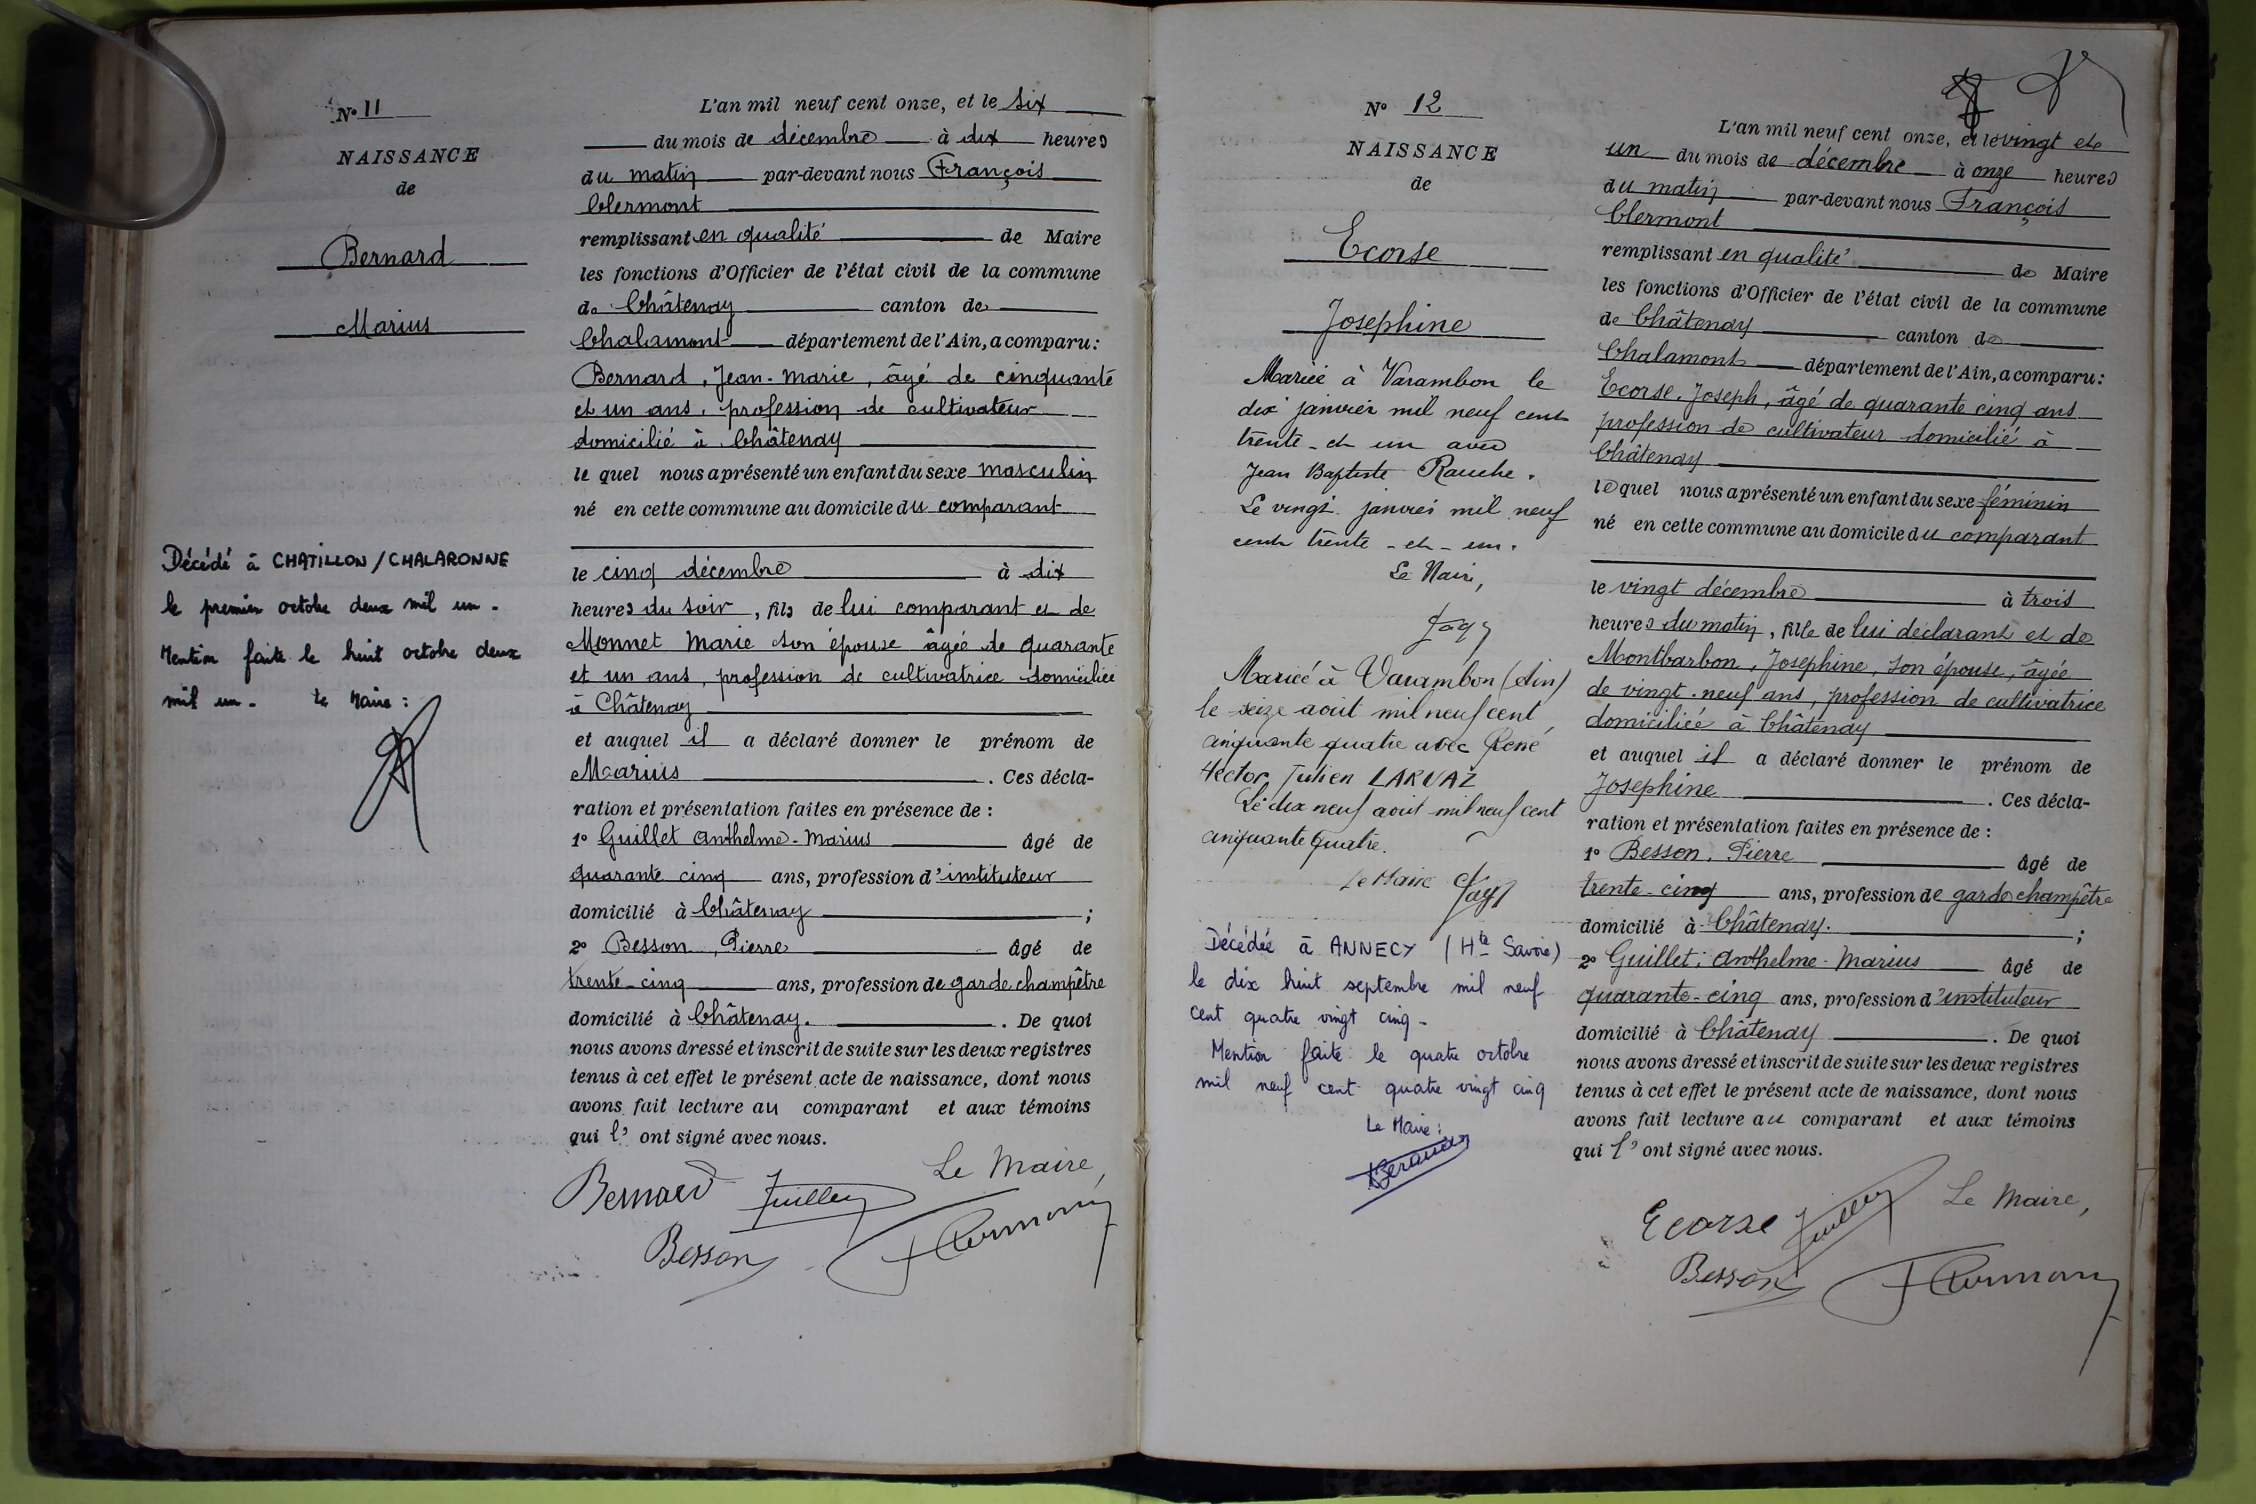 N° 11
NAISSANCE
de
Bernard
Marius
Décédé à CHATILLON/CHALARONNE
le premier octobre deux mil un -
Mention faite le huit octobre deux
mil un - Le Maire :
L'an mil neuf cent onze, et le six
du mois de décembre à dix heures
du matin par-devant nous François
Clermont
remplissant en qualité de Maire
les fonctions d'Officier de l'état civil de la commune
de Châtenay canton de
Chalamont département de l'Ain, a comparu :
Bernard, Jean-Marie, âgé de cinquante
et un ans, profession de cultivateur
domicilié à Châtenay
le quel nous a présenté un enfant du sexe masculin
né en cette commune au domicile du comparant
le cinq décembre à dix
heures du soir, fils de lui comparant et de
Monnet Marie son épouse âgée de quarante
et un ans, profession de cultivatrice domiciliée
à Châtenay
et auquel il a déclaré donner le prénom de
Marius . Ces décla-
ration et présentation faites en présence de :
1° Guillet Anthelme-Marius âgé de
quarante cinq ans, profession d'instituteur
domicilié à Châtenay ;
2° Besson, Pierre âgé de
trente-cinq ans, profession de garde champêtre
domicilié à Châtenay. . De quoi
nous avons dressé et inscrit de suite sur les deux registres
tenus à cet effet le présent acte de naissance, dont nous
avons fait lecture au comparant et aux témoins
qui l' ont signé avec nous.
Bernard Guillet Le Maire,
Besson F Clermont
N° 12
NAISSANCE
de
Ecorse
Josephine
Mariée à Varambon le
dix janvier mil neuf cent
trente-et un avec
Jean Baptiste Rauche.
Le vingt janvier mil neuf
cent trente-et-un.
Le Maire,
Mariée à Varambon (Ain)
le seize août mil neuf cent
cinquante quatre avec René
Hector, Julien LARVAZ
Le dix neuf août mil neuf cent
cinquante quatre.
Le Maire
Décédée à ANNECY (Hte Savoie)
le dix huit septembre mil neuf
cent quatre vingt cinq -
Mention faite le quatre octobre
mil neuf cent quatre vingt cinq
Le Maire :
L'an mil neuf cent onze, et le vingt et
un du mois de décembre à onze heures
du matin par-devant nous François
Clermont
remplissant en qualité de Maire
les fonctions d'Officier de l'état civil de la commune
de Châtenay canton de
Chalamont département de l'Ain, a comparu :
Ecorse, Joseph, âgé de quarante cinq ans
profession de cultivateur domicilié à
Châtenay
le quel nous a présenté un enfant du sexe féminin
né en cette commune au domicile du comparant
le vingt décembre à trois
heures du matin, fille de lui déclarant et de
Montbarbon, Josephine, son épouse, âgée
de vingt-neuf ans, profession de cultivatrice
domiciliée à Châtenay
et auquel il a déclaré donner le prénom de
Josephine . Ces décla-
ration et présentation faites en présence de :
1° Besson, Pierre âgé de
trente-cinq ans, profession de garde champêtre
domicilié à Châtenay. ;
2° Guillet, Anthelme-Marius âgé de
quarante-cinq ans, profession d'instituteur
domicilié à Châtenay . De quoi
nous avons dressé et inscrit de suite sur les deux registres
tenus à cet effet le présent acte de naissance, dont nous
avons fait lecture au comparant et aux témoins
qui l' ont signé avec nous.
Ecorse Guillet Le Maire,
Besson F Clermont